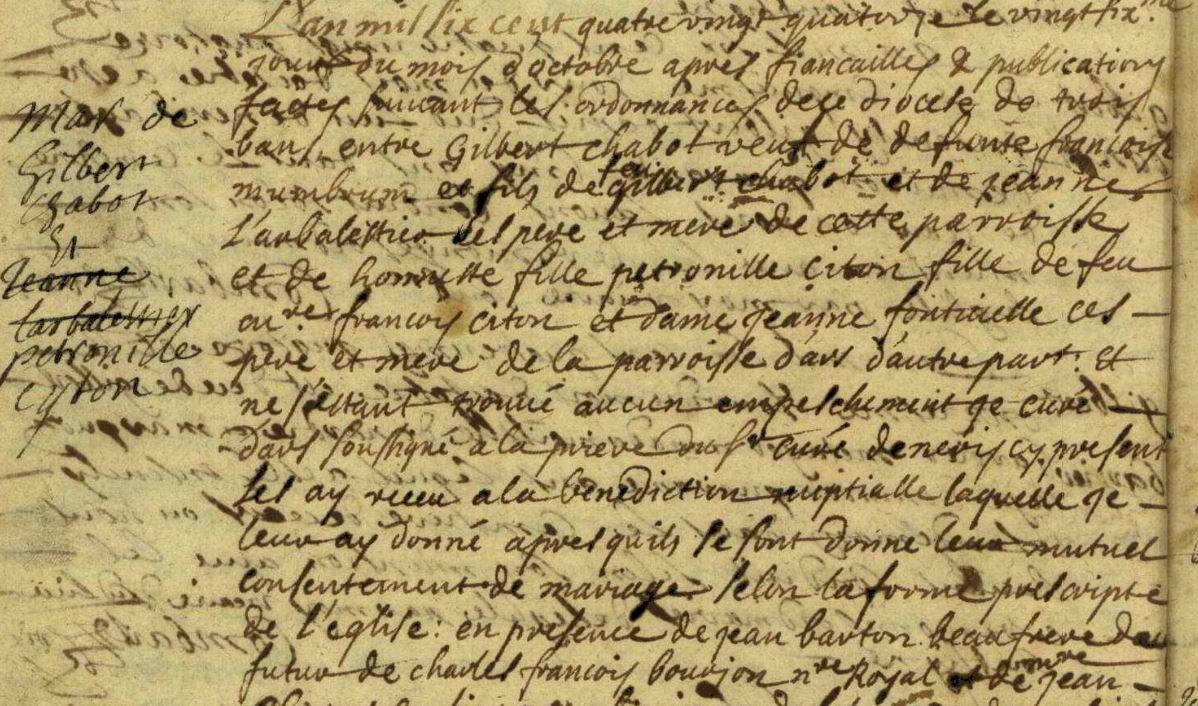 L'an mil six cent quatre vingt quatorze le vingt six.me
jour du mois d'octobre apres fiancailles & publications
factes suivant les ordonnances de ce diocese de trois
bans entre Gilbert chabot veuf de defunte françoise
et fils de feu gilbert chabot et de jeanne
L'arbalestier ses pere et mere de cette parroisse
et de honneste fille petronille citon fille de feu
francois citon et dame jeanne ces
pere et mere de la parroisse d'ars d'autre part. et
ne s'estant trouvé aucun empeschement je curé
d'ars soussigné a la priere du sr curé de neris cy present
les ay receu a la benediction nuptialle laquelle je
leur ay donné apres quils se sont donné leur mutuel
consentement de mariage selon la forme prescripte
de l'eglise: en presence de jean barton beaufrere du
futur de charles françois bourjon nre Royal et de jean
Mar de
Gilbert
Chabot
Et
Jeanne
Larbalestier
petronille
cyton